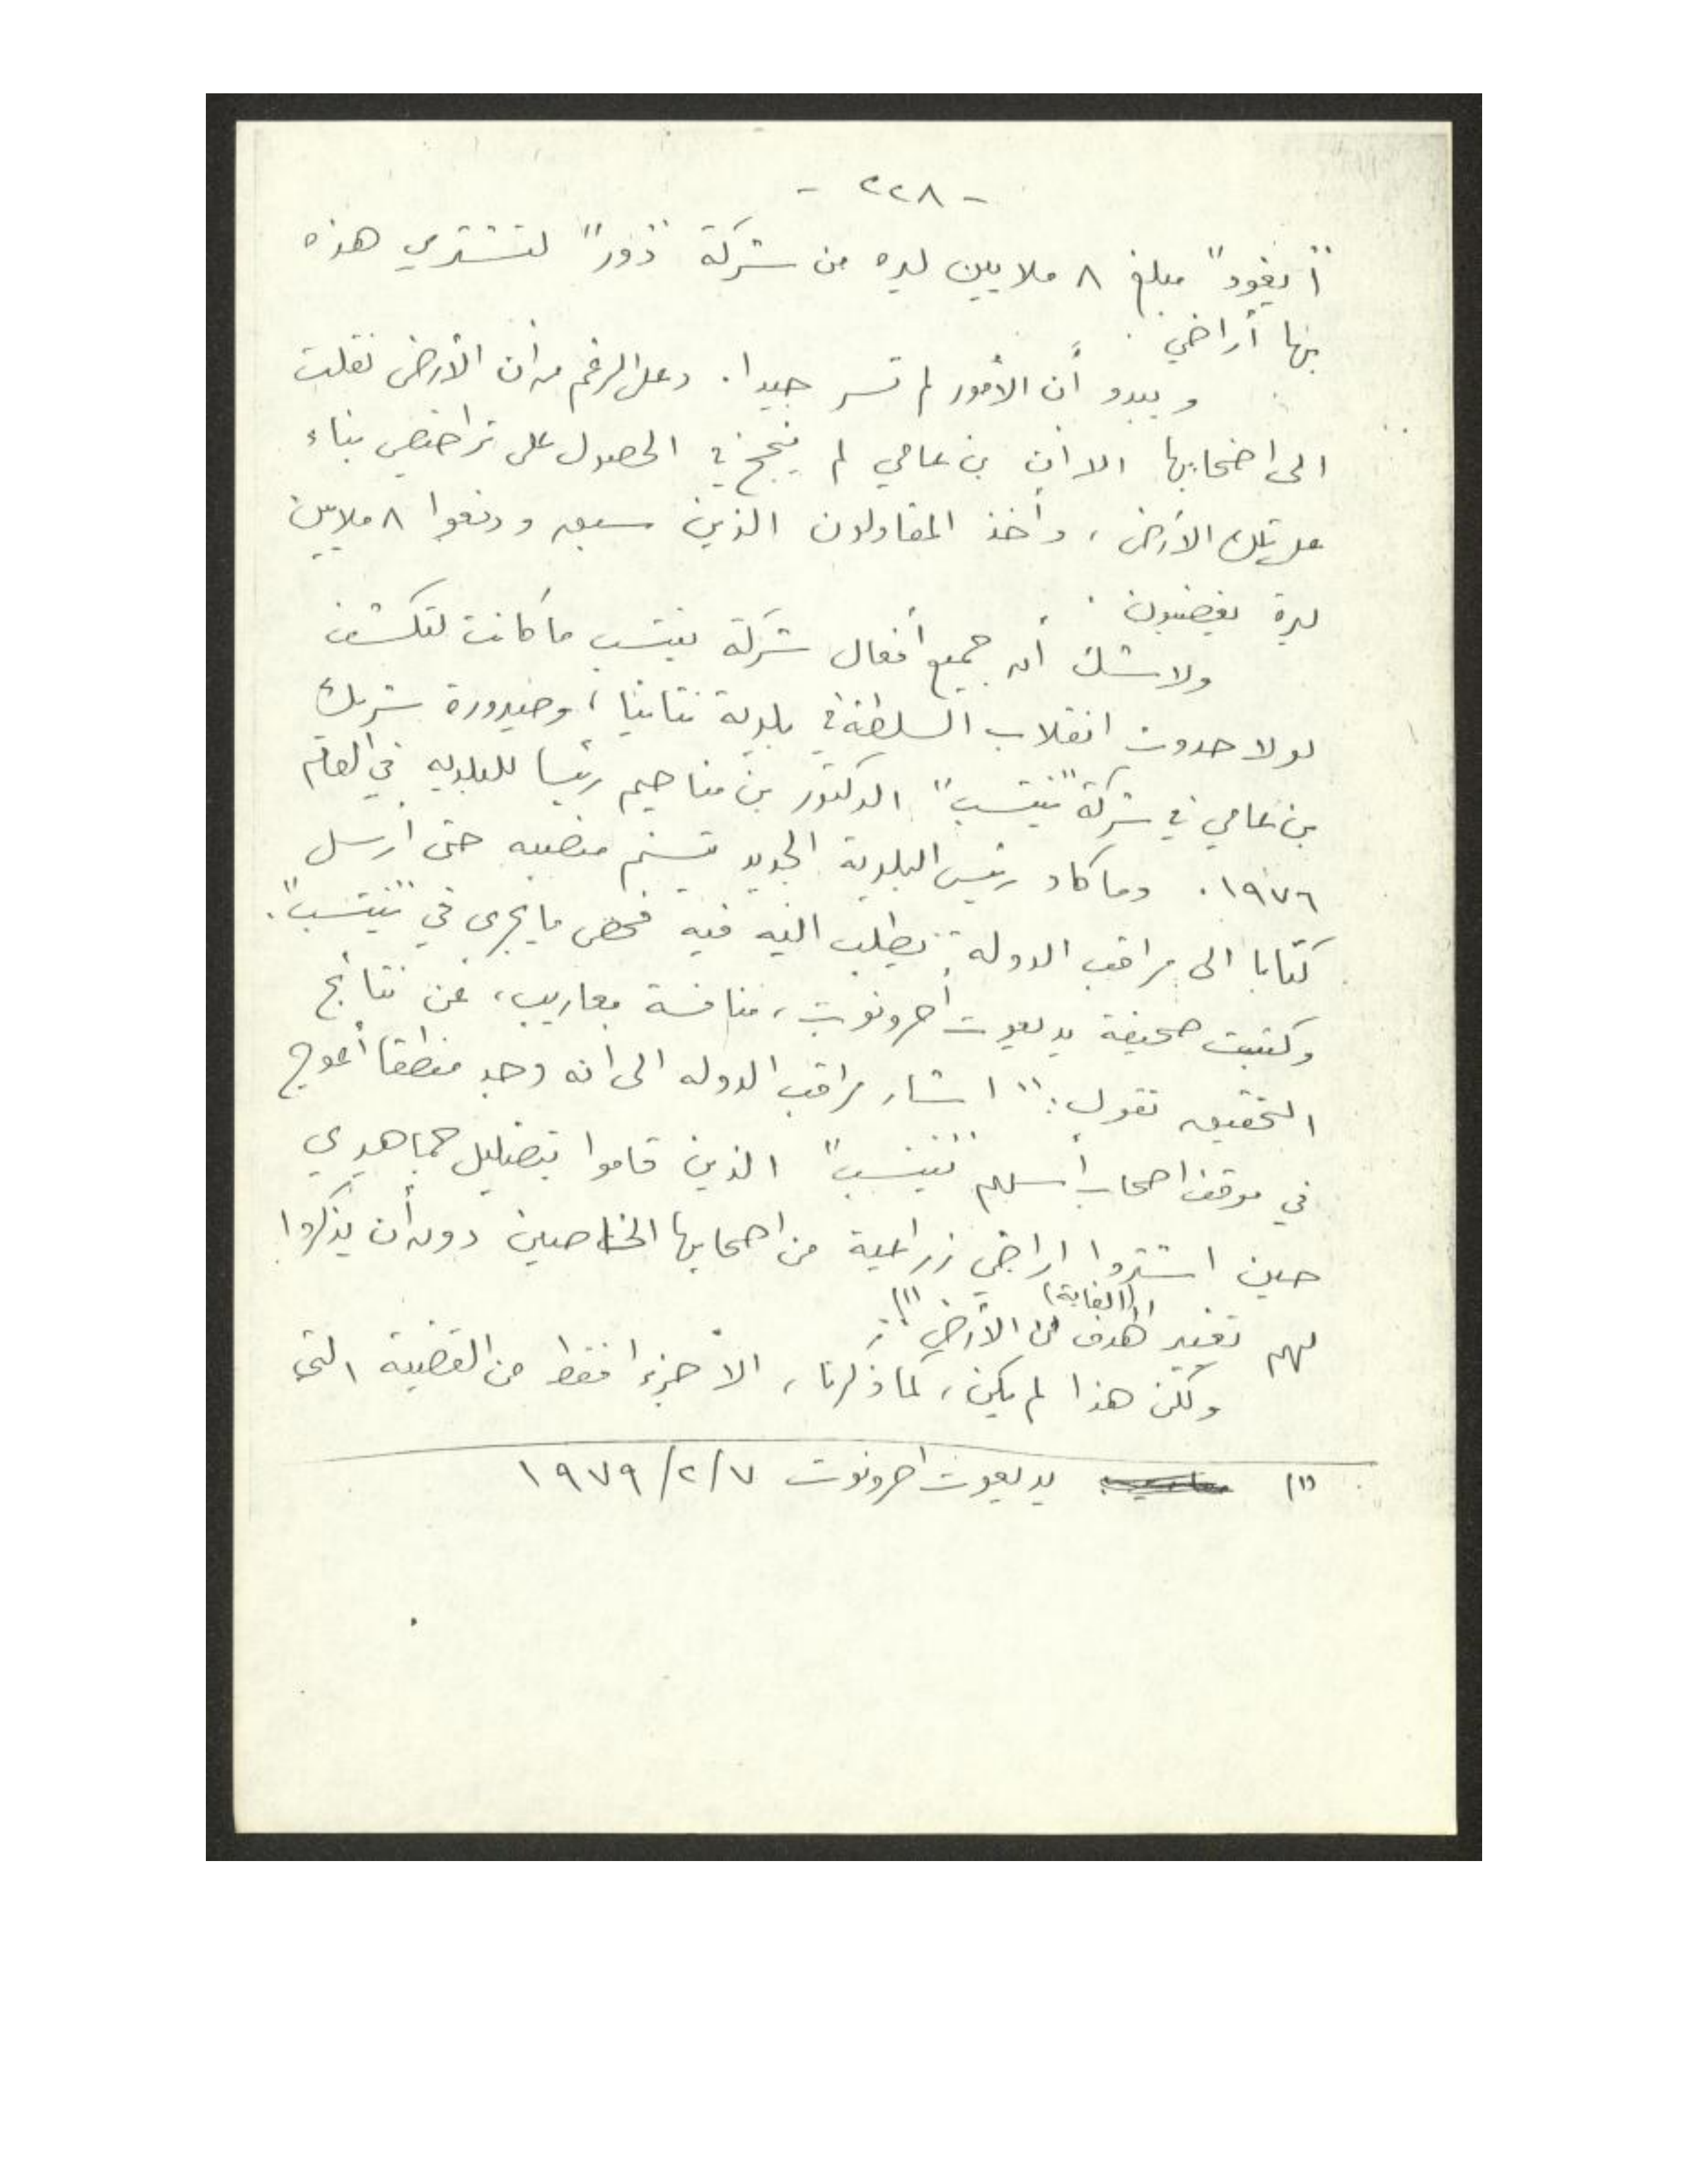 - ٢٢٨ -
"أيغود" مبلغ ٨ ملايين ليره من شركة "دور" لتشتري هذه
بها أراضي.
ويبدو أن الأمور لم تسر جيدا. وعلى الرغم من أن الأرض نقلت
الى اصحابها الا ان بن عامي لم ينجح في الحصول على تراخيص بناء
على تلك الأرض، وأخذ المقاولون الذين سبق ودفعوا ٨ ملايين
ليرة يغضبون.
ولا شك أن جميع أفعال شركة نيتسب ما كانت لتكشف
لولا حدوث انقلاب السلطة في بلدية نتانيا، وصيرورة شريك
بن عامي في شركة "نيتسب" الدكتور بن مناحيم رئيسا للبلديه في العام
١٩٧٦. وما كاد رئيس البلدية الجديد تسنم منصبه حتى أرسل
كتابا الى مراقب الدولة يطلب اليه فيه فحص ما يجرى في "نيتسب".
وكتبت صحيفة يديعوت أحرونوت، منافسة معاريب، عن نتائج
التحقيق تقول: "اشار مراقب الدوله الى انه وجد منطقا أعوج
في موقف اصحاب أسهم "نيتسب" الذين قاموا بتضليل جماهيري
حين اشتروا اراضي زراعية من اصحابها الخاصين دون أن يذكروا
لهم تغيير الهدف (الغاية) من الأرض"(١).
ولكن هذا لم يكن، كما ذكرنا، الا جزءا فقط من القضية التي
(١) يديعوت احرونوت ٧/٢/١٩٧٩